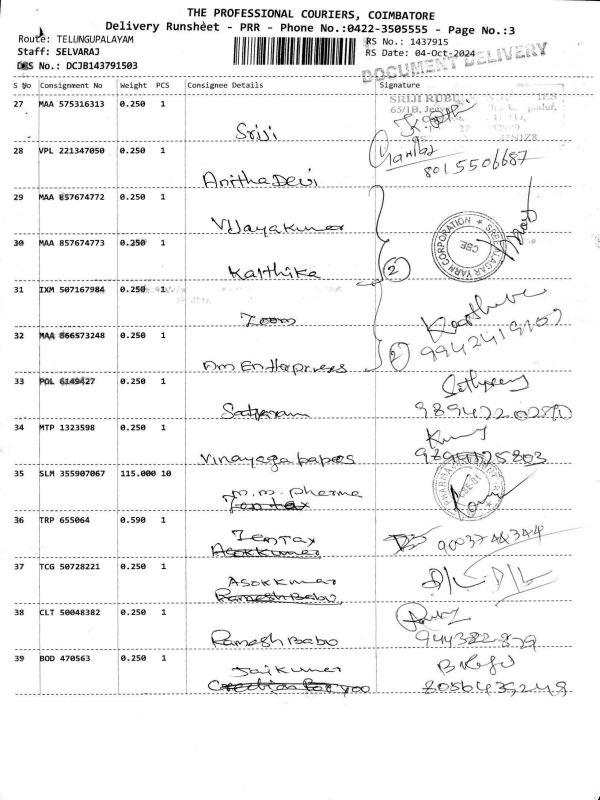 THE PROFESSIONAL COURIERS, COIMBATORE
Delivery Runsheet - PRR - Phone No.:0422-3505555 - Page No.:3
Route: TELUNGUPALAYAM
RS No.: 1437915
Staff: SELVARAJ
RS Date: 04-Oct-2024
DRS No.: DCJB143791503
DOCUMENT DELIVERY
S No Consignment No Weight PCS Consignee Details Signature
27 MAA 575316313 0.250 1
SRIJI
65/1B,
Sriji
28 VPL 221347050 0.250 1
8015506687
Anitha Devi
29 MAA 857674772 0.250 1
Vijayakumar
30 MAA 857674773 0.250 1
YARN CORPORATION
CBE
Karthika
2
31 IXM 507167984 0.250 1
Zoom
32 MAA 866573248 0.250 1
Am Enterprises
2
33 POL 6149427 0.250 1
34 MTP 1323598 0.250 1
Vinayaga papers
35 SLM 355907067 115.000 10
m.m. pharma
Zentax
36 TRP 655064 0.590 1
Zentax
9003744344
Asokkumar
37 TCG 50728221 0.250 1
Asokkumar
Ramesh Babu
38 CLT 50048382 0.250 1
Ramesh Babu
39 BOD 470563 0.250 1
Jaikumar
Creation For you